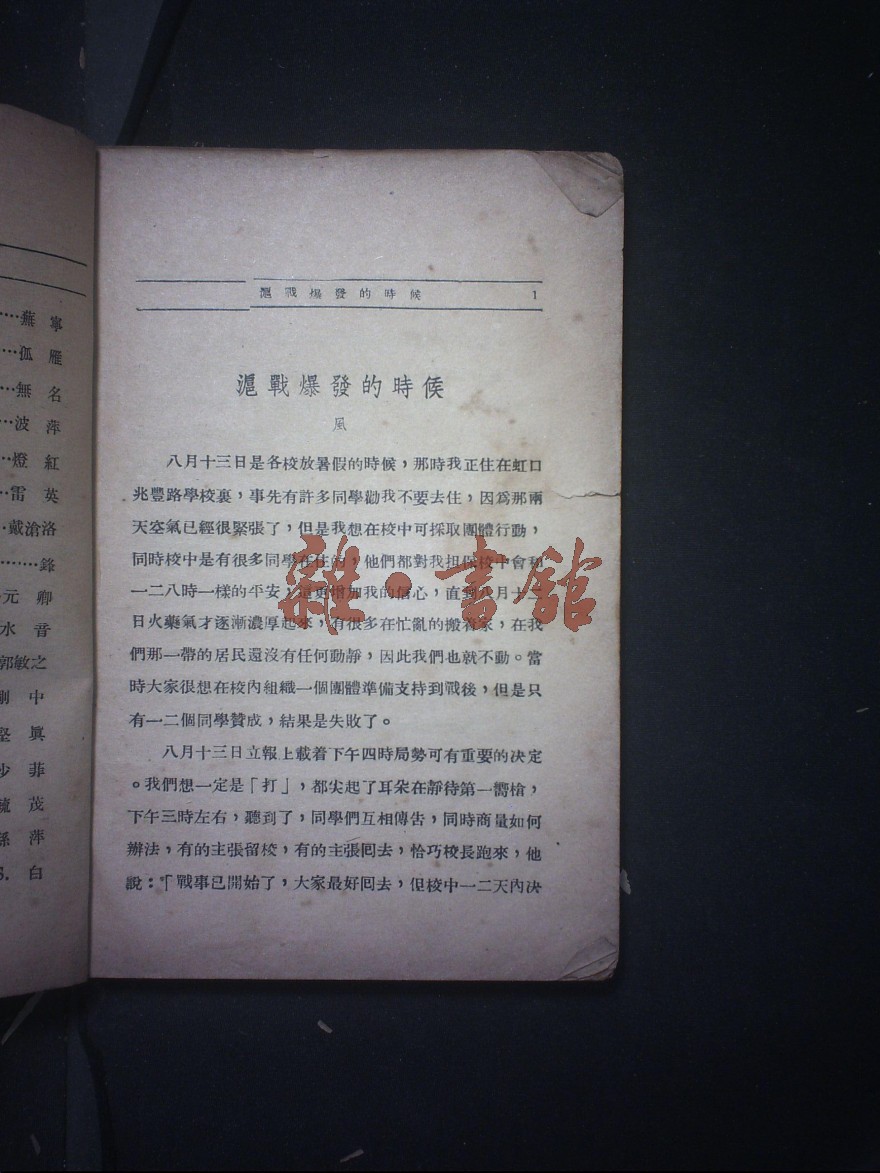 燕寧
孤雁
無名
波萍
燈紅
雷英
戴滄洛
鋒
元卿
水音
郭敏之
剛中
堅眞
少菲
茂
孫萍
S.白
滬戰爆發的時候 1
滬戰爆發的時候
風
八月十三日是各校放暑假的時候，那時我正住在虹口
兆豐路學校裏，事先有許多同學勸我不要去住，因爲那兩
天空氣已經很緊張了，但是我想在校中可採取團體行動，
同時校中是有很多同學在住的，他們都對我担保校中會和
一二八時一樣的平安，這更增加我的信心，直到八月十二
日火藥氣才逐漸濃厚起來，有很多在忙亂的搬着家，在我
們那一帶的居民還沒有任何動靜，因此我們也就不動。當
時大家很想在校內組織一個團體準備支持到戰後，但是只
有一二個同學贊成，結果是失敗了。
八月十三日立報上載着下午四時局勢可有重要的決定
。我們想一定是「打」，都尖起了耳朵在靜待第一嚮槍，
下午三時左右，聽到了，同學們互相傳告，同時商量如何
辦法，有的主張留校，有的主張囘去，恰巧校長跑來，他
說：「戰事已開始了，大家最好囘去，但校中一二天內決
雜·書館